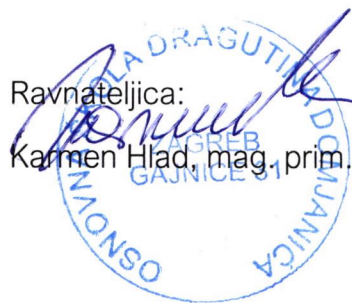 Ravnateljica:
Karmen Hlad, mag. prim.
OSNOVNA ŠKOLA DRAGUTINA DOMJANIĆA
ZAGREB
GAJNICE 31